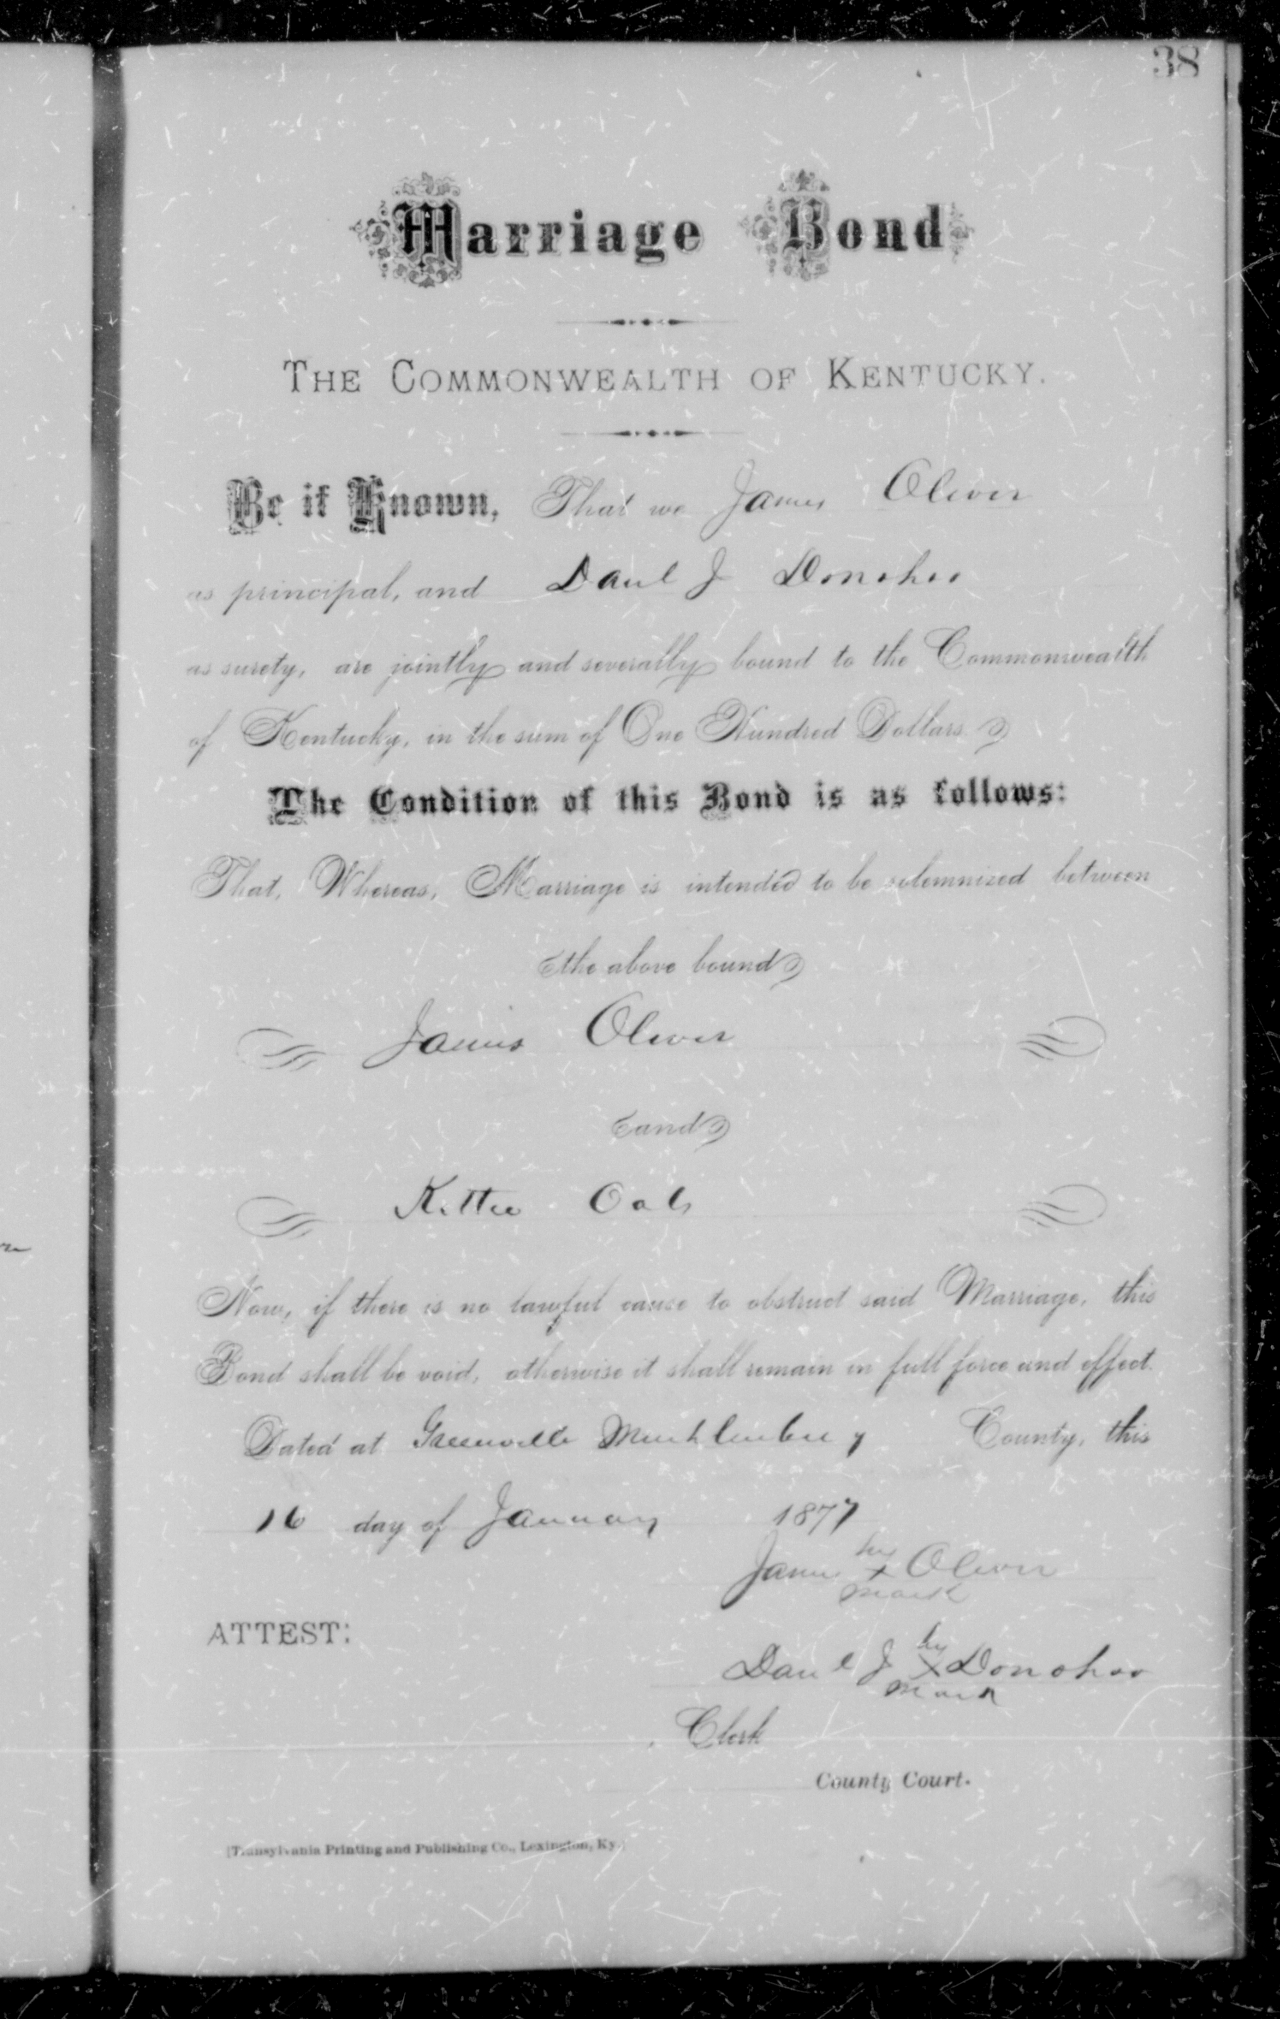 38
Marriage Bond
THE COMMONWEALTH OF KENTUCKY.
Be it Known, That we James Oliver
as principal, and Danl J Donohoo
as surety, are jointly and severally bound to the Commonwealth
of Kentucky, in the sum of One Hundred Dollars.
The Condition of this Bond is as follows:
That, Whereas, Marriage is intended to be solemnized between
the above bound
James Oliver
and
Kittie
Now, if there is no lawful cause to obstruct said Marriage, this
Bond shall be void, otherwise it shall remain in full force and effect.
Dated at Greenville Muhlenberg County, this
16 day of January 1877
his
James x Oliver
mark
ATTEST:
his
Danl J x Donohoo
mark
Clerk
County Court.
[Transylvania Printing and Publishing Co., Lexington, Ky.]